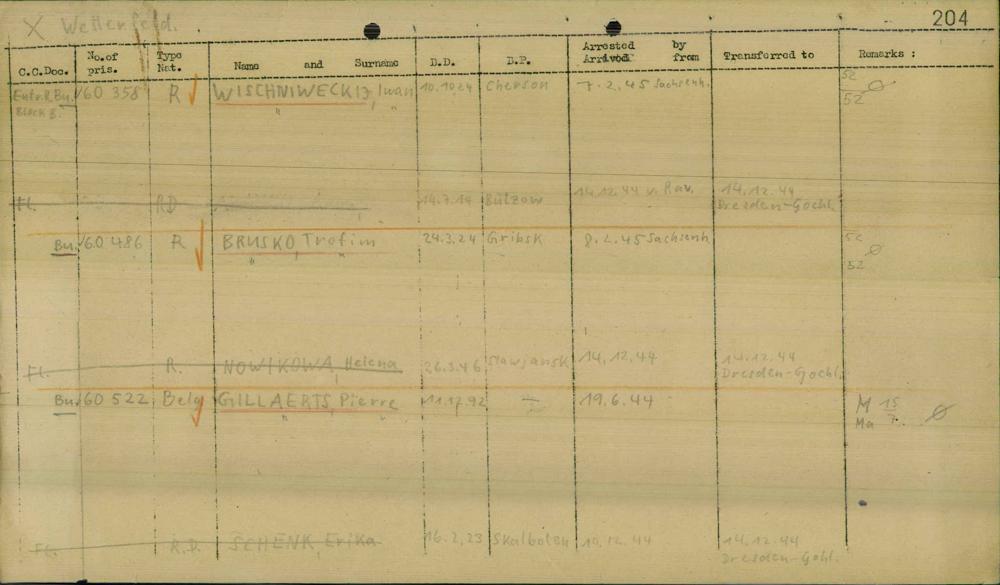 X Wetterfeld.
204
C.C.Doc. No.of pris. Type Nat. Name and Surname D.D. D.P. Arrested by Arrived from Transferred to Remarks :
Bu. 60 358 R WISCHNIWECKIJ, Iwan 10.10.24 Cherson 7.2.45 Sachsenh. 52
Block 8. " " 52
FL. RD 14.7.14 Bützow 14.12.44 v. Rav. 14.12.44
Dresden-Goehl.
Bu. 60 486 R BRUSKO, Trofim 24.3.24 Gribsk 8.2.45 Sachsenh. 52
" " 52
FL. R. NOWIKOWA, Helena 26.3.46 Slawjansk 14.12.44 14.12.44
Dresden-Goehl.
Bu. 60 522 Belg GILLAERTS, Pierre 11.12.92 19.6.44 M 15
" " Ma 7.
FL. R.D. SCHENK, Erika 16.2.23 Skalboten 14.12.44
Dresden-Gohl.